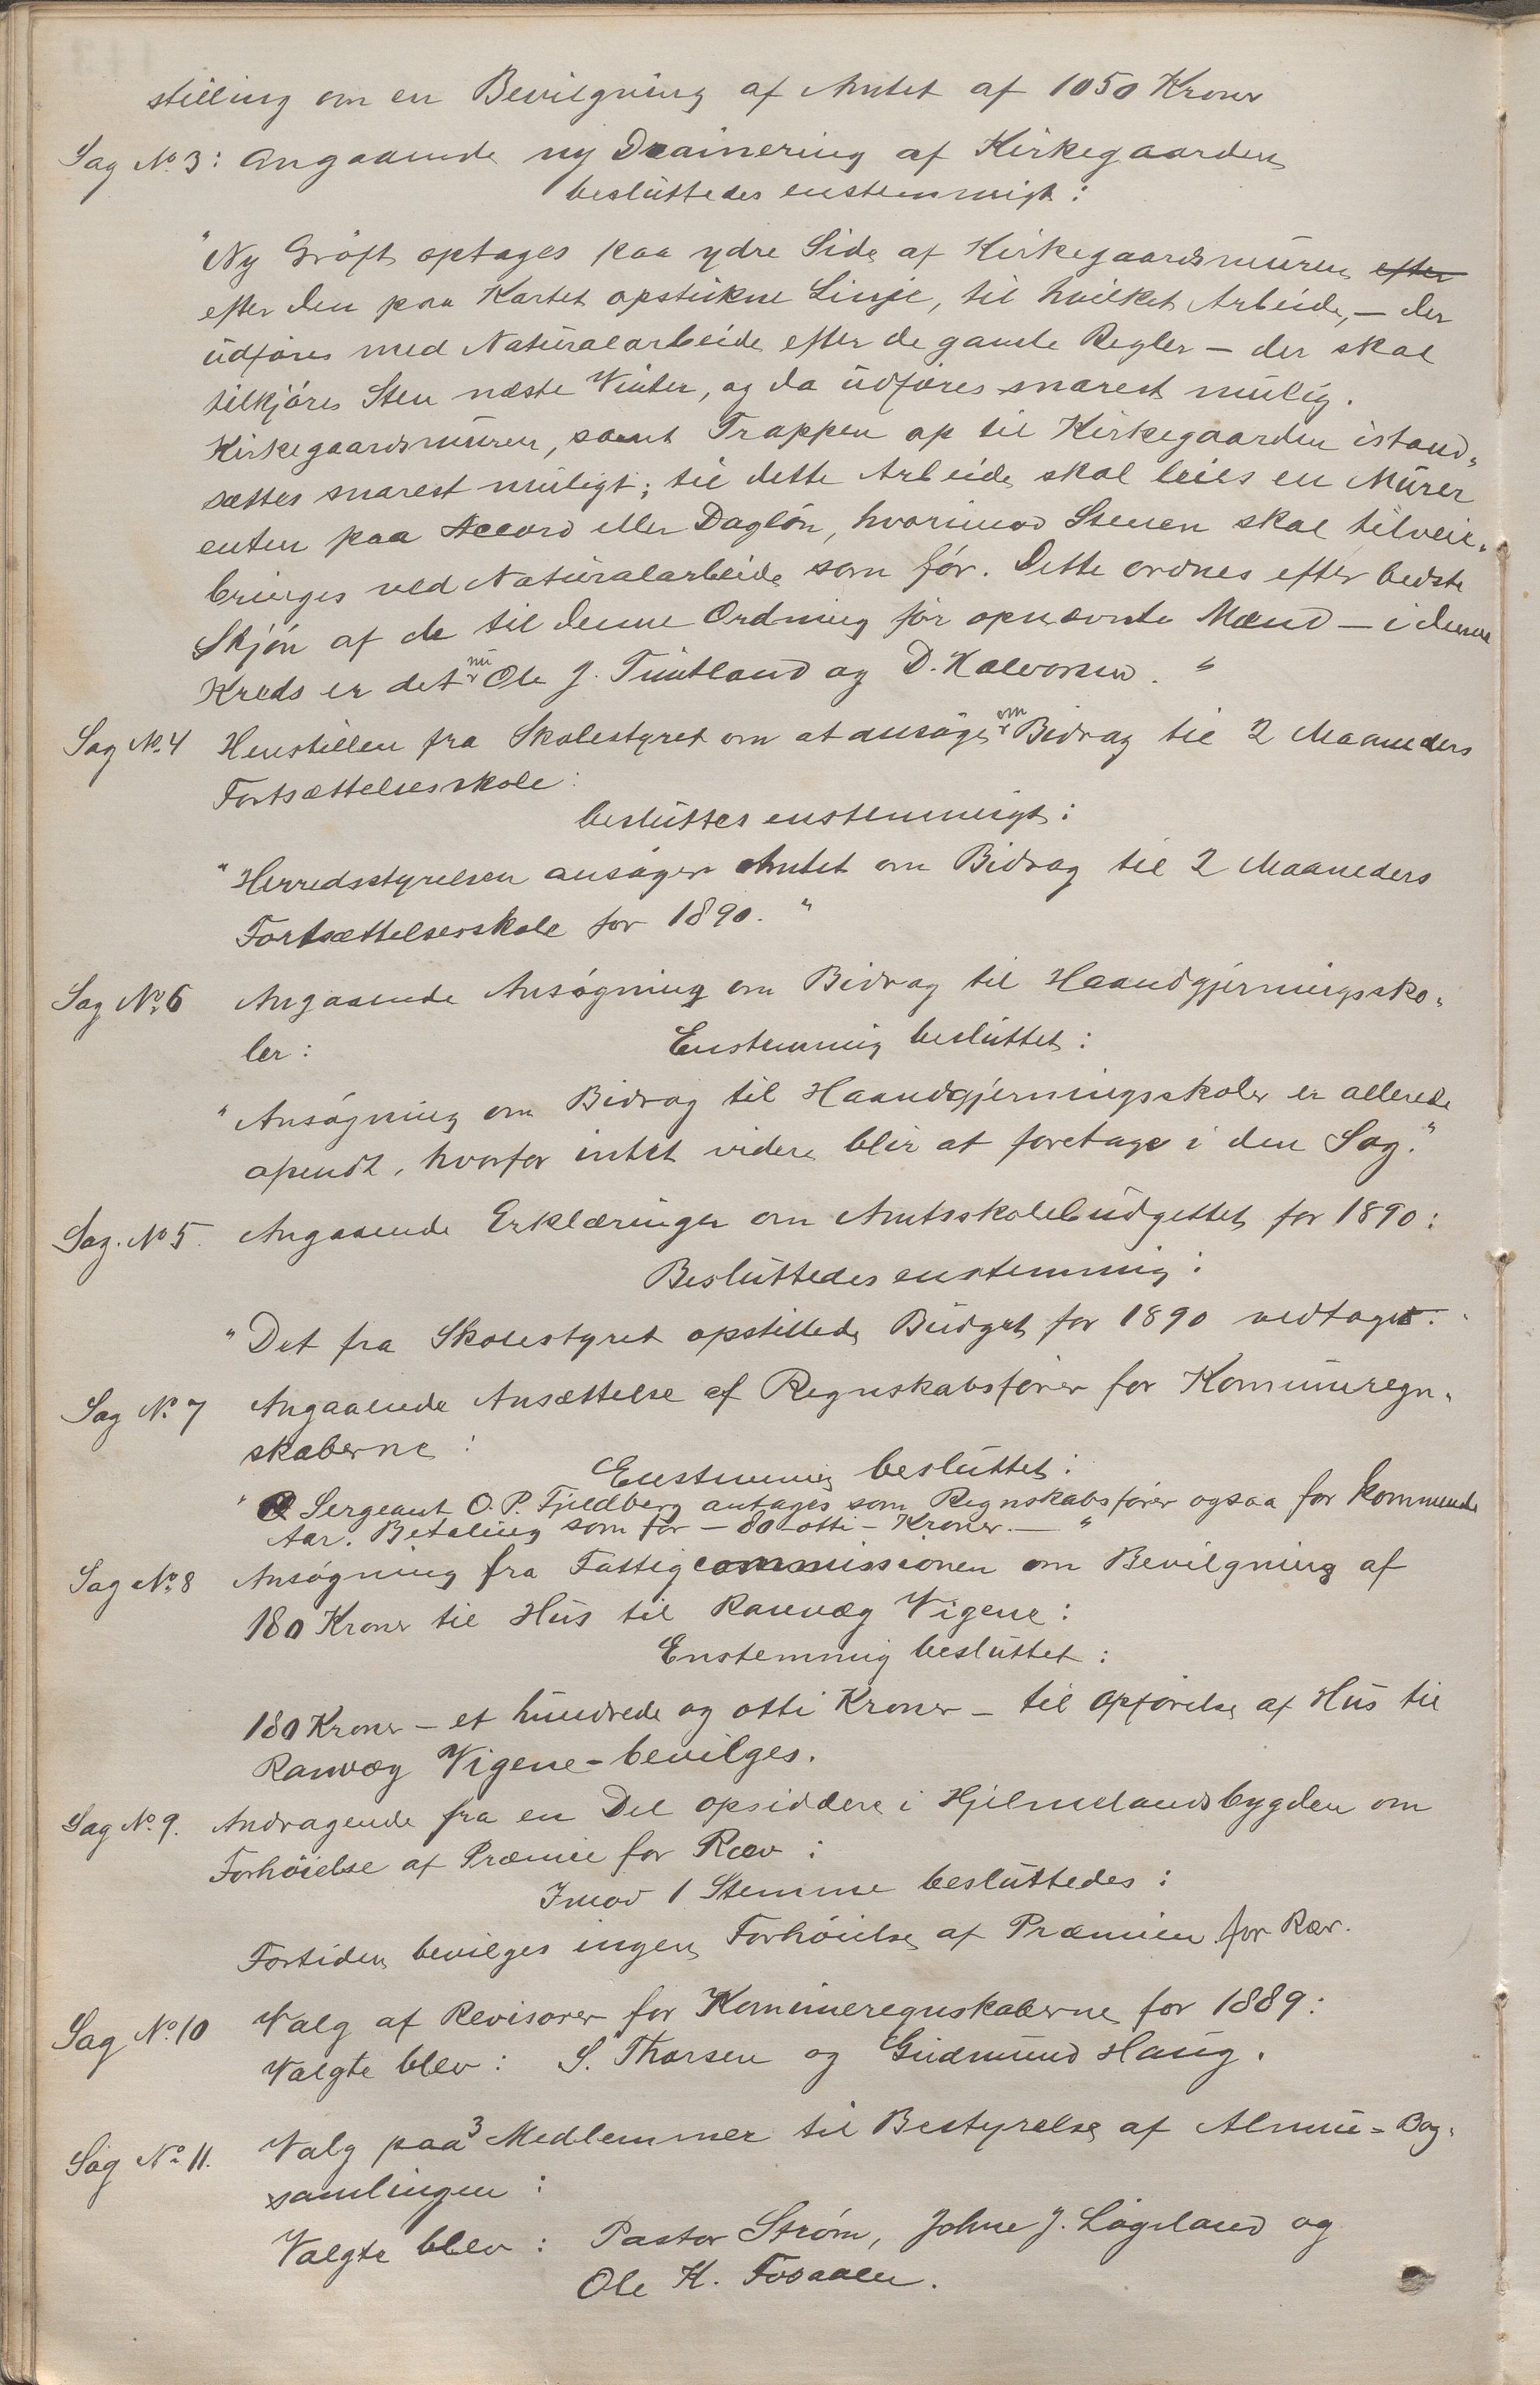 stilling om en Bevilgning af Amtet af 1050 Kroner
Sag No. 3: Angaaende ny Drainering af Kirkegaarden
besluttedes enstemmigt:
"Ny Grøft optages paa ydre Side af Kirkegaardsmuren efter
efter den paa Kartet opstukne Linje, til hvilket Arbeide, – der
udføres med Naturalarbeide efter de gamle Regler – der skal
tilkjøres Sten næste Vinter, og da udføres snarest mulig.
Kirkegaardsmuren, samt Trappen op til Kirkegaarden istand-
sættes snarest muligt; til dette Arbeide skal leies en Mürer
enten paa Accord eller Dagløn, hvorimod Stenen skal tilveie-
bringes ved Naturalarbeide som før. Dette ordnes efter bedste
Skjøn af de til denne Ordning før opnævnte Mænd – i denne
Kreds er det nu Ole J. Tuntland og D. Halvorsen. "
Sag No. 4 Henstillen fra Skolestyret om at ansøges om Bidrag til 2 Maaneders
Fortsættelsesskole:
besluttes enstemmigt:
"Herredsstyrelsen ansøger Amtet om Bidrag til 2 Maaneders
Fortsættelsesskole for 1890. "
Sag No. 6 Angaaende Ansøgning om Bidrag til Haandgjerningssko-
ler: Enstemmig besluttet:
"Ansøgning om Bidrag til Haandgjerningsskoler er allerede
opendt, hvorfor intet videre blir at foretage i den Sag."
Sag. No 5. Angaaende Erklæringer om Amtsskolebudgettet for 1890:
Besluttedes enstemmig:
"Det fra Skolestyret opstillede Budget for 1890 vedtaget.
Sag No. 7 Angaaende Ansættelse af Regnskabsfører for Kommuneregn-
skaberne:
Enstemmig besluttet:
" Sergeant O. P. Fjeldberg antages som Regnskabsfører ogsaa for kommende
Aar. Betaling som før – 80 – otti – Kroner. – "
Sag No. 8 Ansøgning fra Fattigcommissionen om Bevilgning af
180 Kroner til Hus til Ranvæg Vigene:
Enstemmig besluttet:
180 Kroner – et hundrede og otti Kroner – til Opførelse af Hus til
Ranvæg Vigene – bevilges.
Sag No. 9. Andragende fra en Del opsiddere i Hjelmelandsbygden om
Forhøielse af Præmie for Ræv:
Imod 1 Stemme besluttedes:
Fortiden bevilges ingen Forhøielse af Præmien for Ræv.
Sag No. 10 Valg af Revisorer for Kommuneregnskaberne for 1889:
Valgte blev: S. Thorsen og Gudmund Haug.
Sag No. 11. Valg paa 3 Medlemmer til Bestyrelse af Almue-Bog-
samlingen:
Valgte blev: Pastor Strøm, Johne J. Laugaland og
Ole K. Fosaaen.